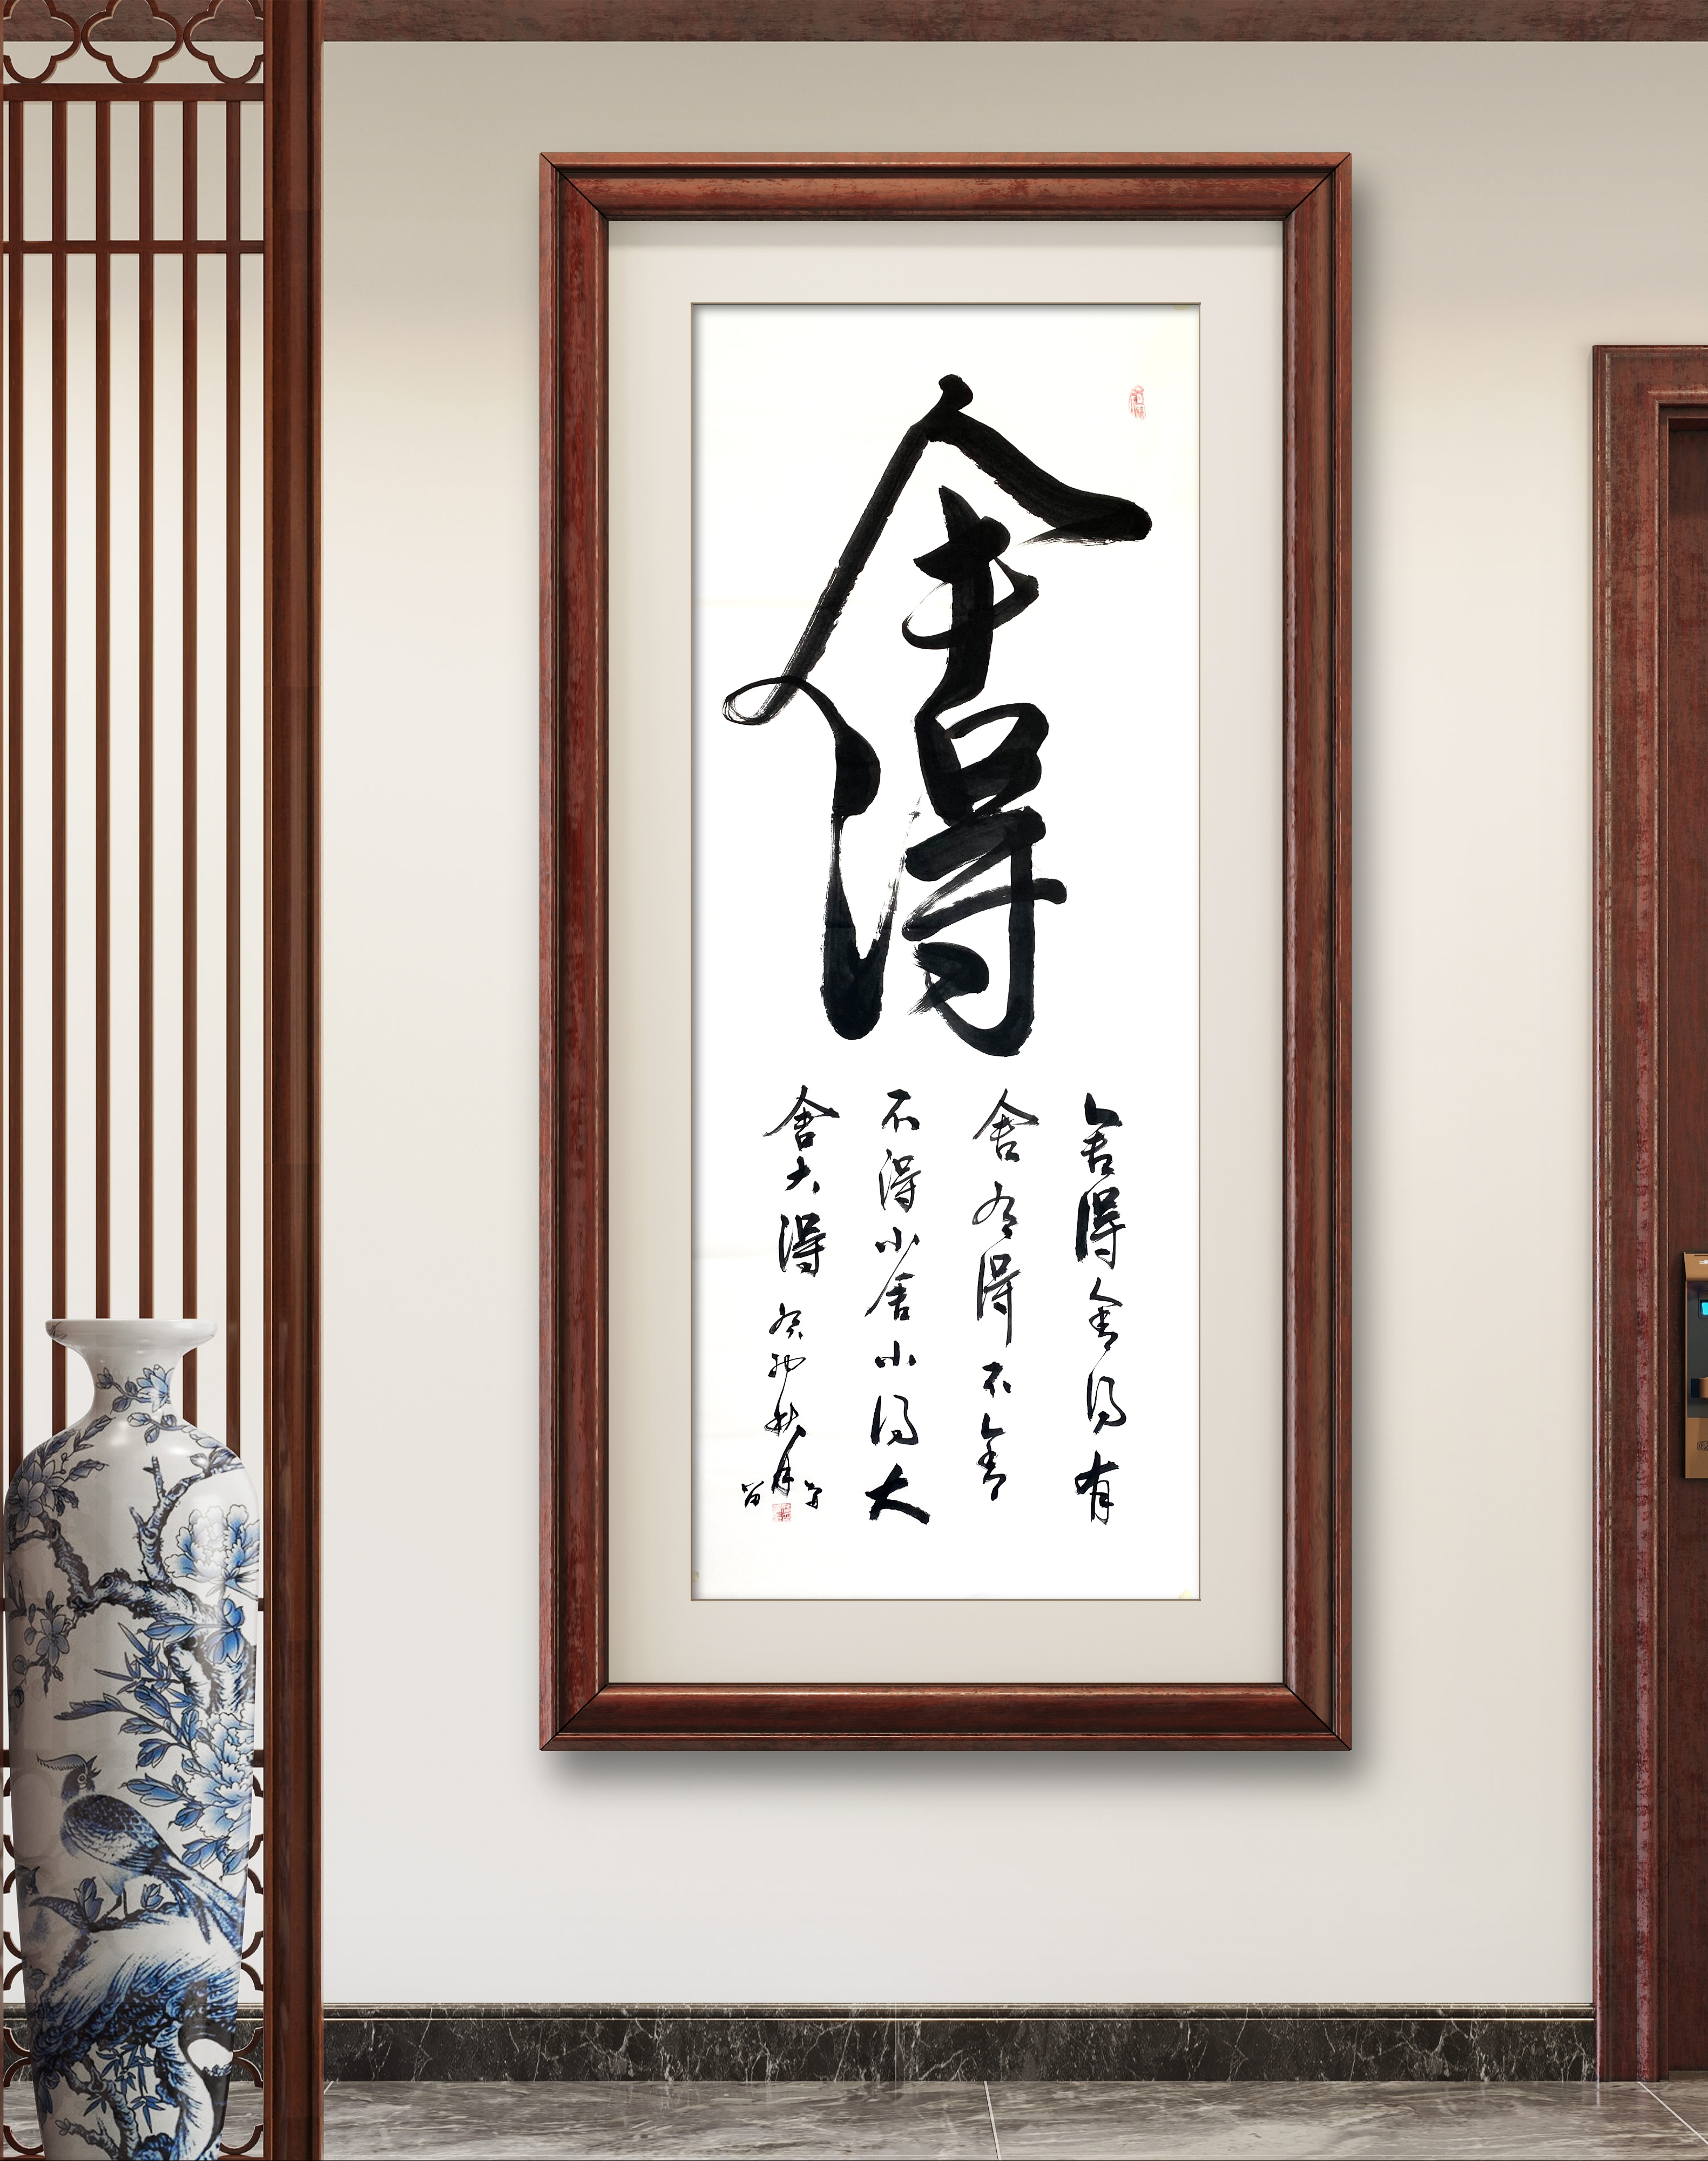 舍得
舍得舍得有
舍有得不舍
不得小舍小得大
舍大得 癸卯秋月